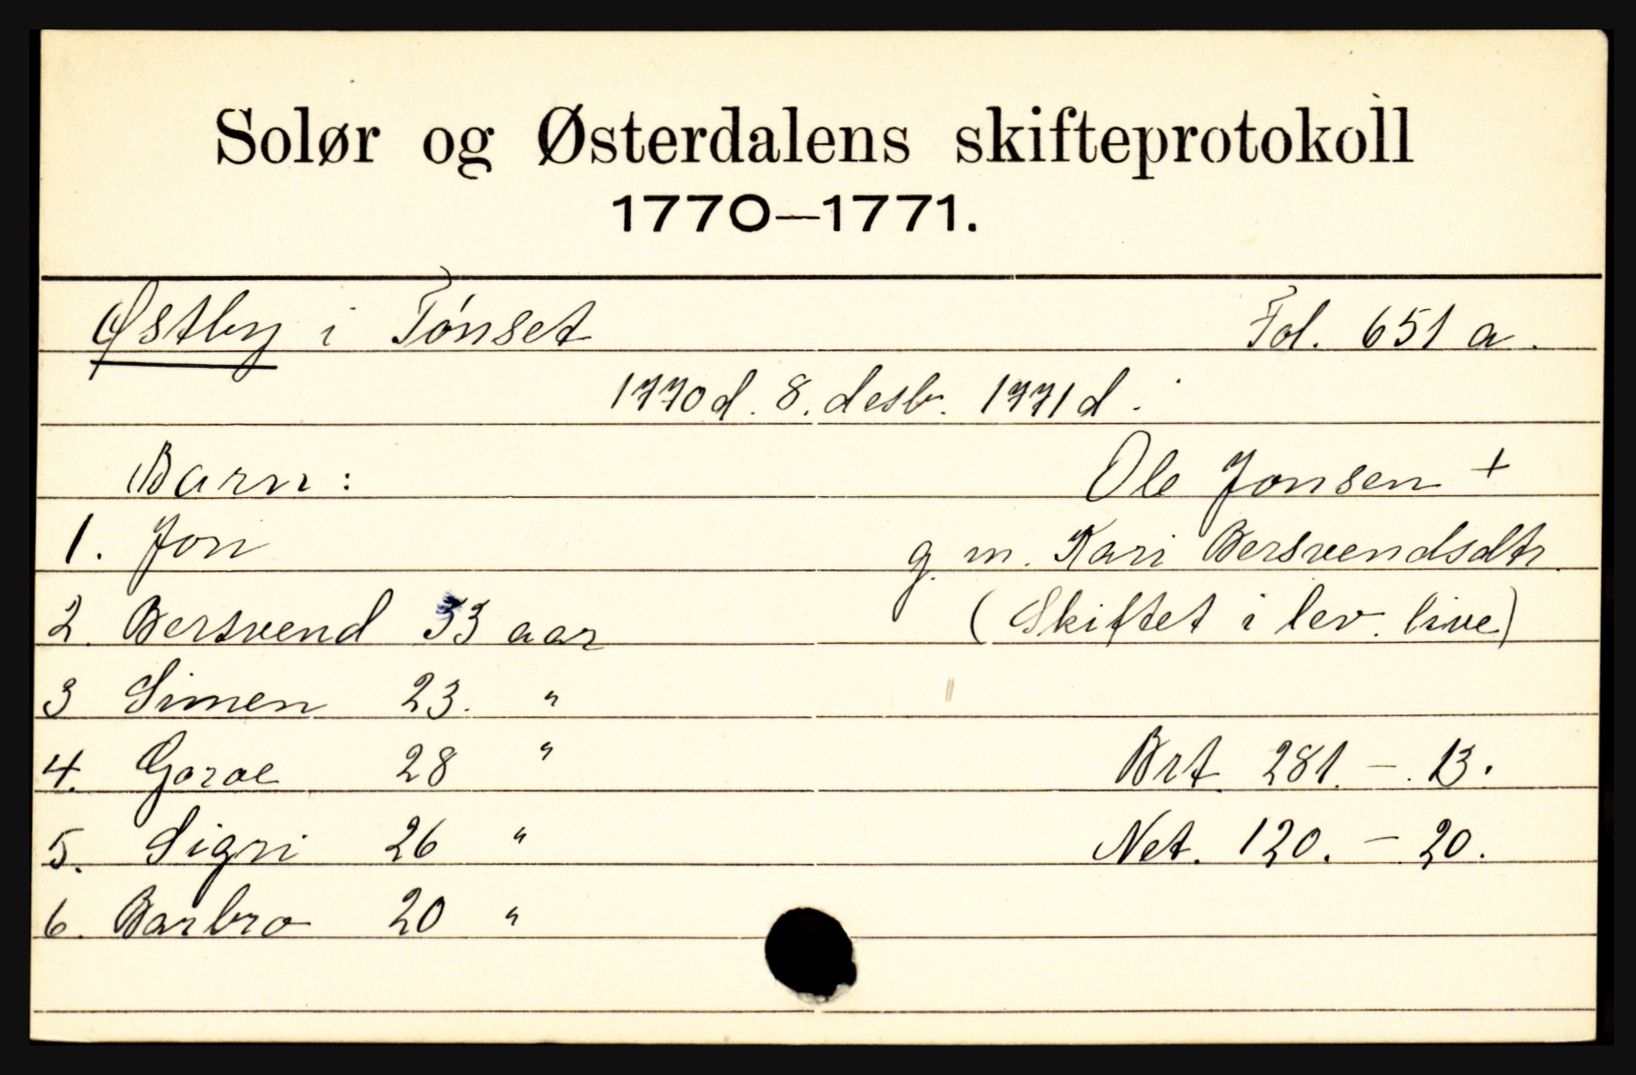 Solør og Østerdalens skifteprotokoll
1770—1771.
Østby i Tønset Fol. 651 a.
1770 d. 8. desb. 1771 d.
Barn: Ole Jonsen +
1. Jon g. m. Kari Bersvendsdtr.
2. Bersvend 33 aar (Skiftet i lev. live)
3 Simen 23. "
4. Goroe 28 " Brt. 281. – 13.
5. Sigri 26 " Net. 120. – 20.
6. Barbro 20 "